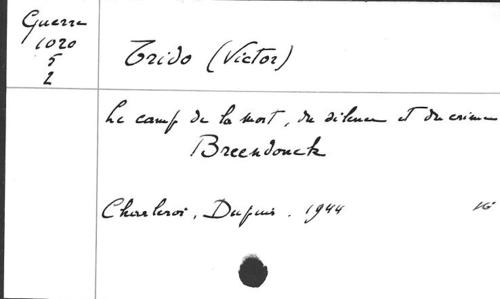 Guerre
1020
5
2
Trido (Victor)
Le camp de la mort, du silence et du crime
Breendonck
Charleroi, Dupuis. 1944